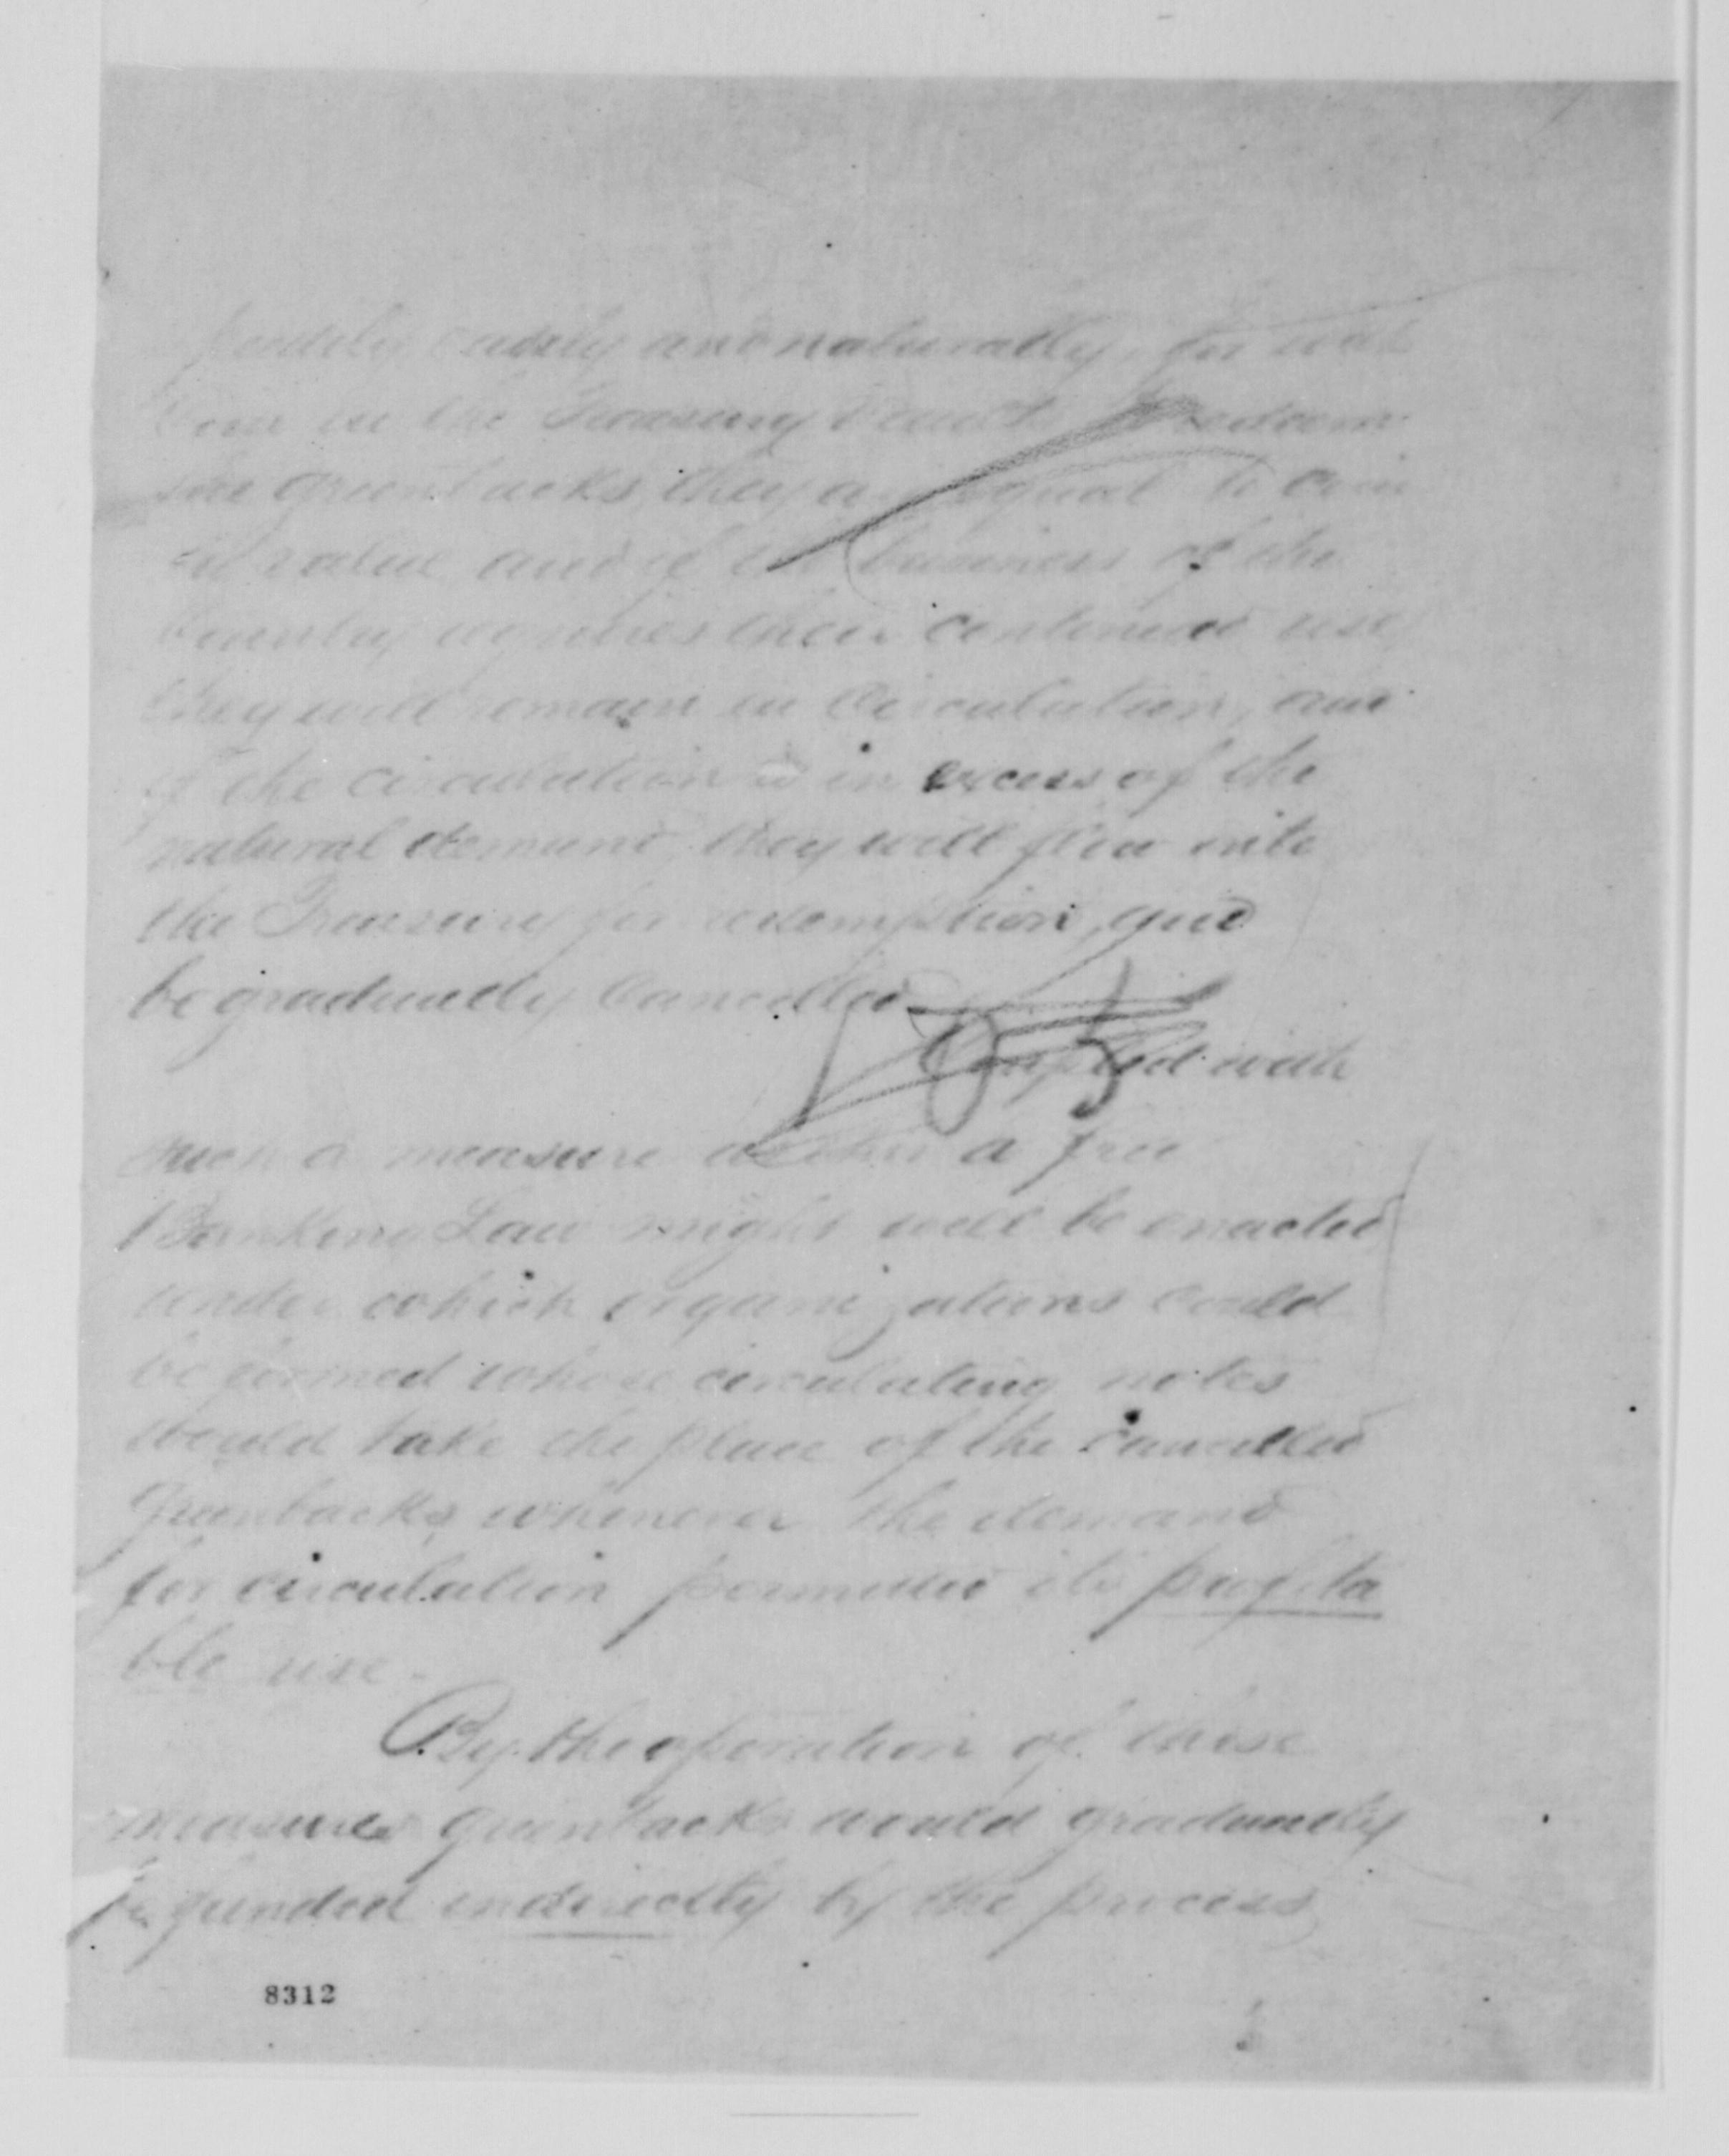 easily and naturally, for with
Coin in the Treasury to redeem
the Greenbacks, they are equal to Coin
in value, and if the business of the
Country requires their continued use
they will remain in Circulation, and
if the circulation is in excess of the
natural demand, they will flow into
the Treasury for redemption, and
be gradually Cancelled
Coupled with
such a measure a free
Banking Law might well be enacted
under which organizations could
be formed whose circulating notes
would take the place of the Cancelled
Greenbacks, whenever the demand
for circulation permitted its profita
ble use.
By the operation of these
measures Greenbacks would gradually
be funded indirectly by the process
8312